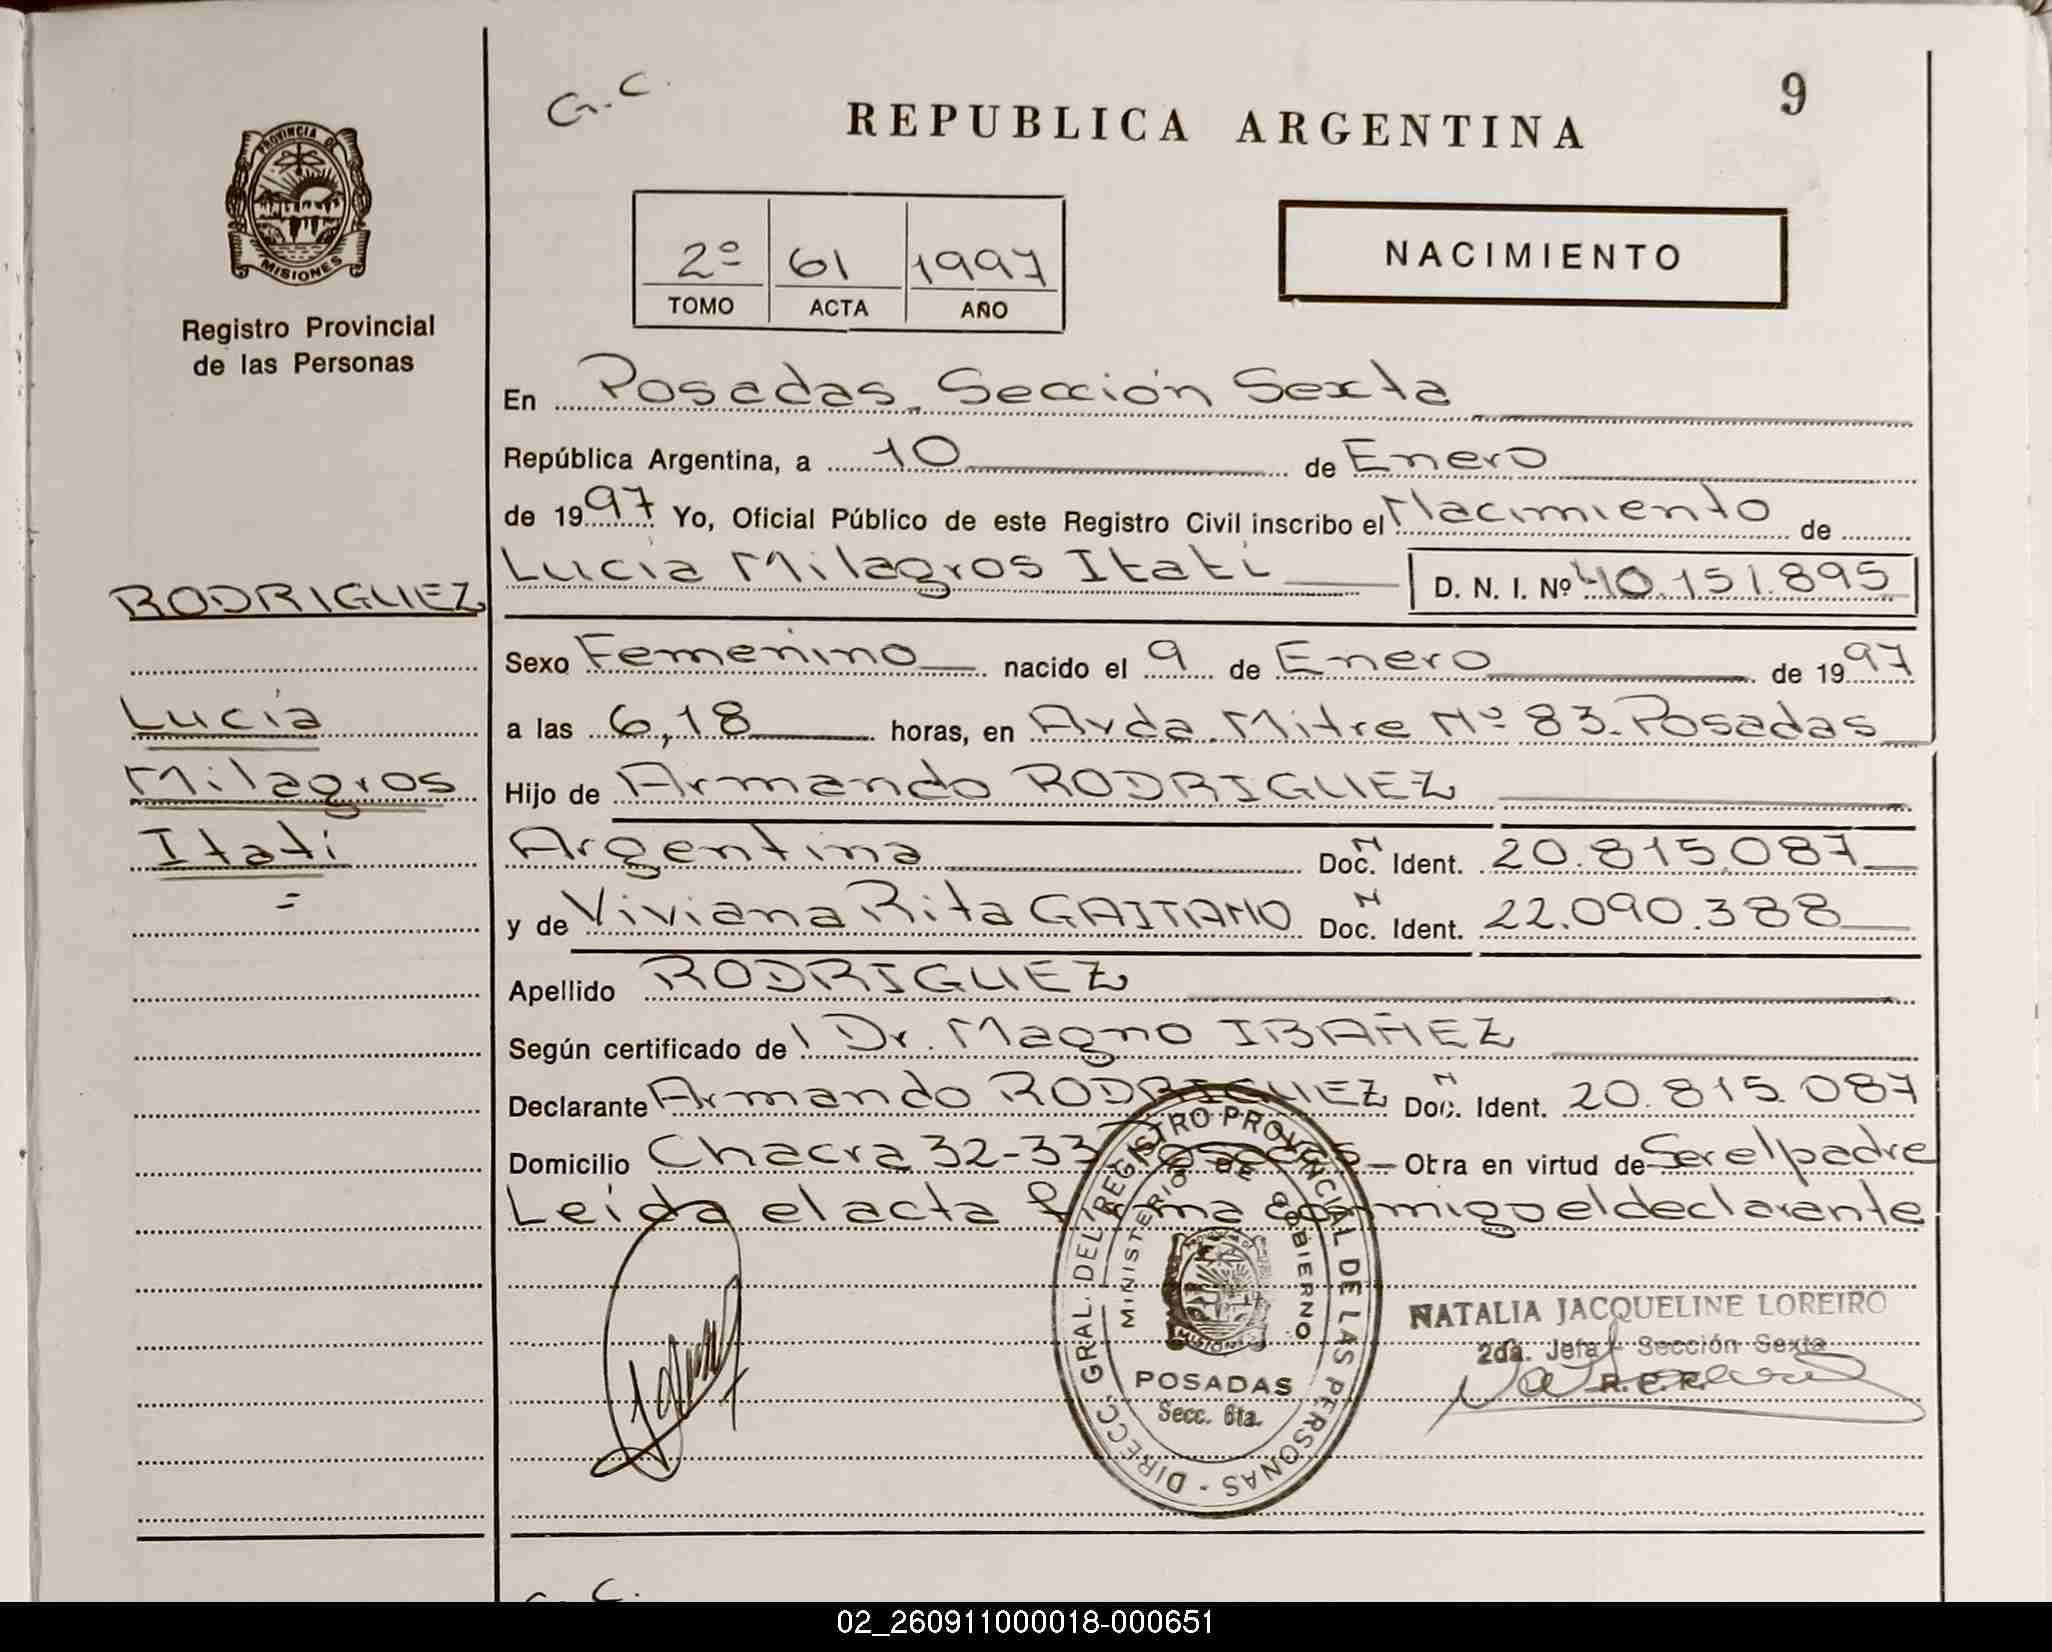 G. C.
9
REPUBLICA ARGENTINA
PROVINCIA DE
MISIONES
Registro Provincial
de las Personas
2º 61 1997
TOMO ACTA AÑO
NACIMIENTO
En Posadas. Sección Sexta
República Argentina, a 10 de Enero
de 1997 Yo, Oficial Público de este Registro Civil inscribo el Nacimiento de
Lucía Milagros Itatí D. N. I. Nº 40.151.895
RODRIGUEZ
Lucía
Milagros
Itatí
Sexo Femenino nacido el 9 de Enero de 1997
a las 6,18 horas, en Avda. Mitre Nº 83. Posadas
Hijo de Armando RODRIGUEZ
Argentina Doc. N Ident. 20.815.087
y de Viviana Rita GAITANO Doc. N Ident. 22.090.388
Apellido RODRIGUEZ
Según certificado del Dr. Magno IBAÑEZ
Declarante Armando RODRIGUEZ Doc. N Ident. 20.815.087
Domicilio Chacra 32-33 Posadas Obra en virtud de Ser el padre
Leída el acta firma conmigo el declarante
DIRECC. GRAL. DEL REGISTRO PROVINCIAL DE LAS PERSONAS
MINISTERIO DE GOBIERNO
MISIONES
POSADAS
Secc. 6ta.
NATALIA JACQUELINE LOREIRO
2da. Jefa Sección Sexta
R. P. P.
G. C.
02_260911000018-000651